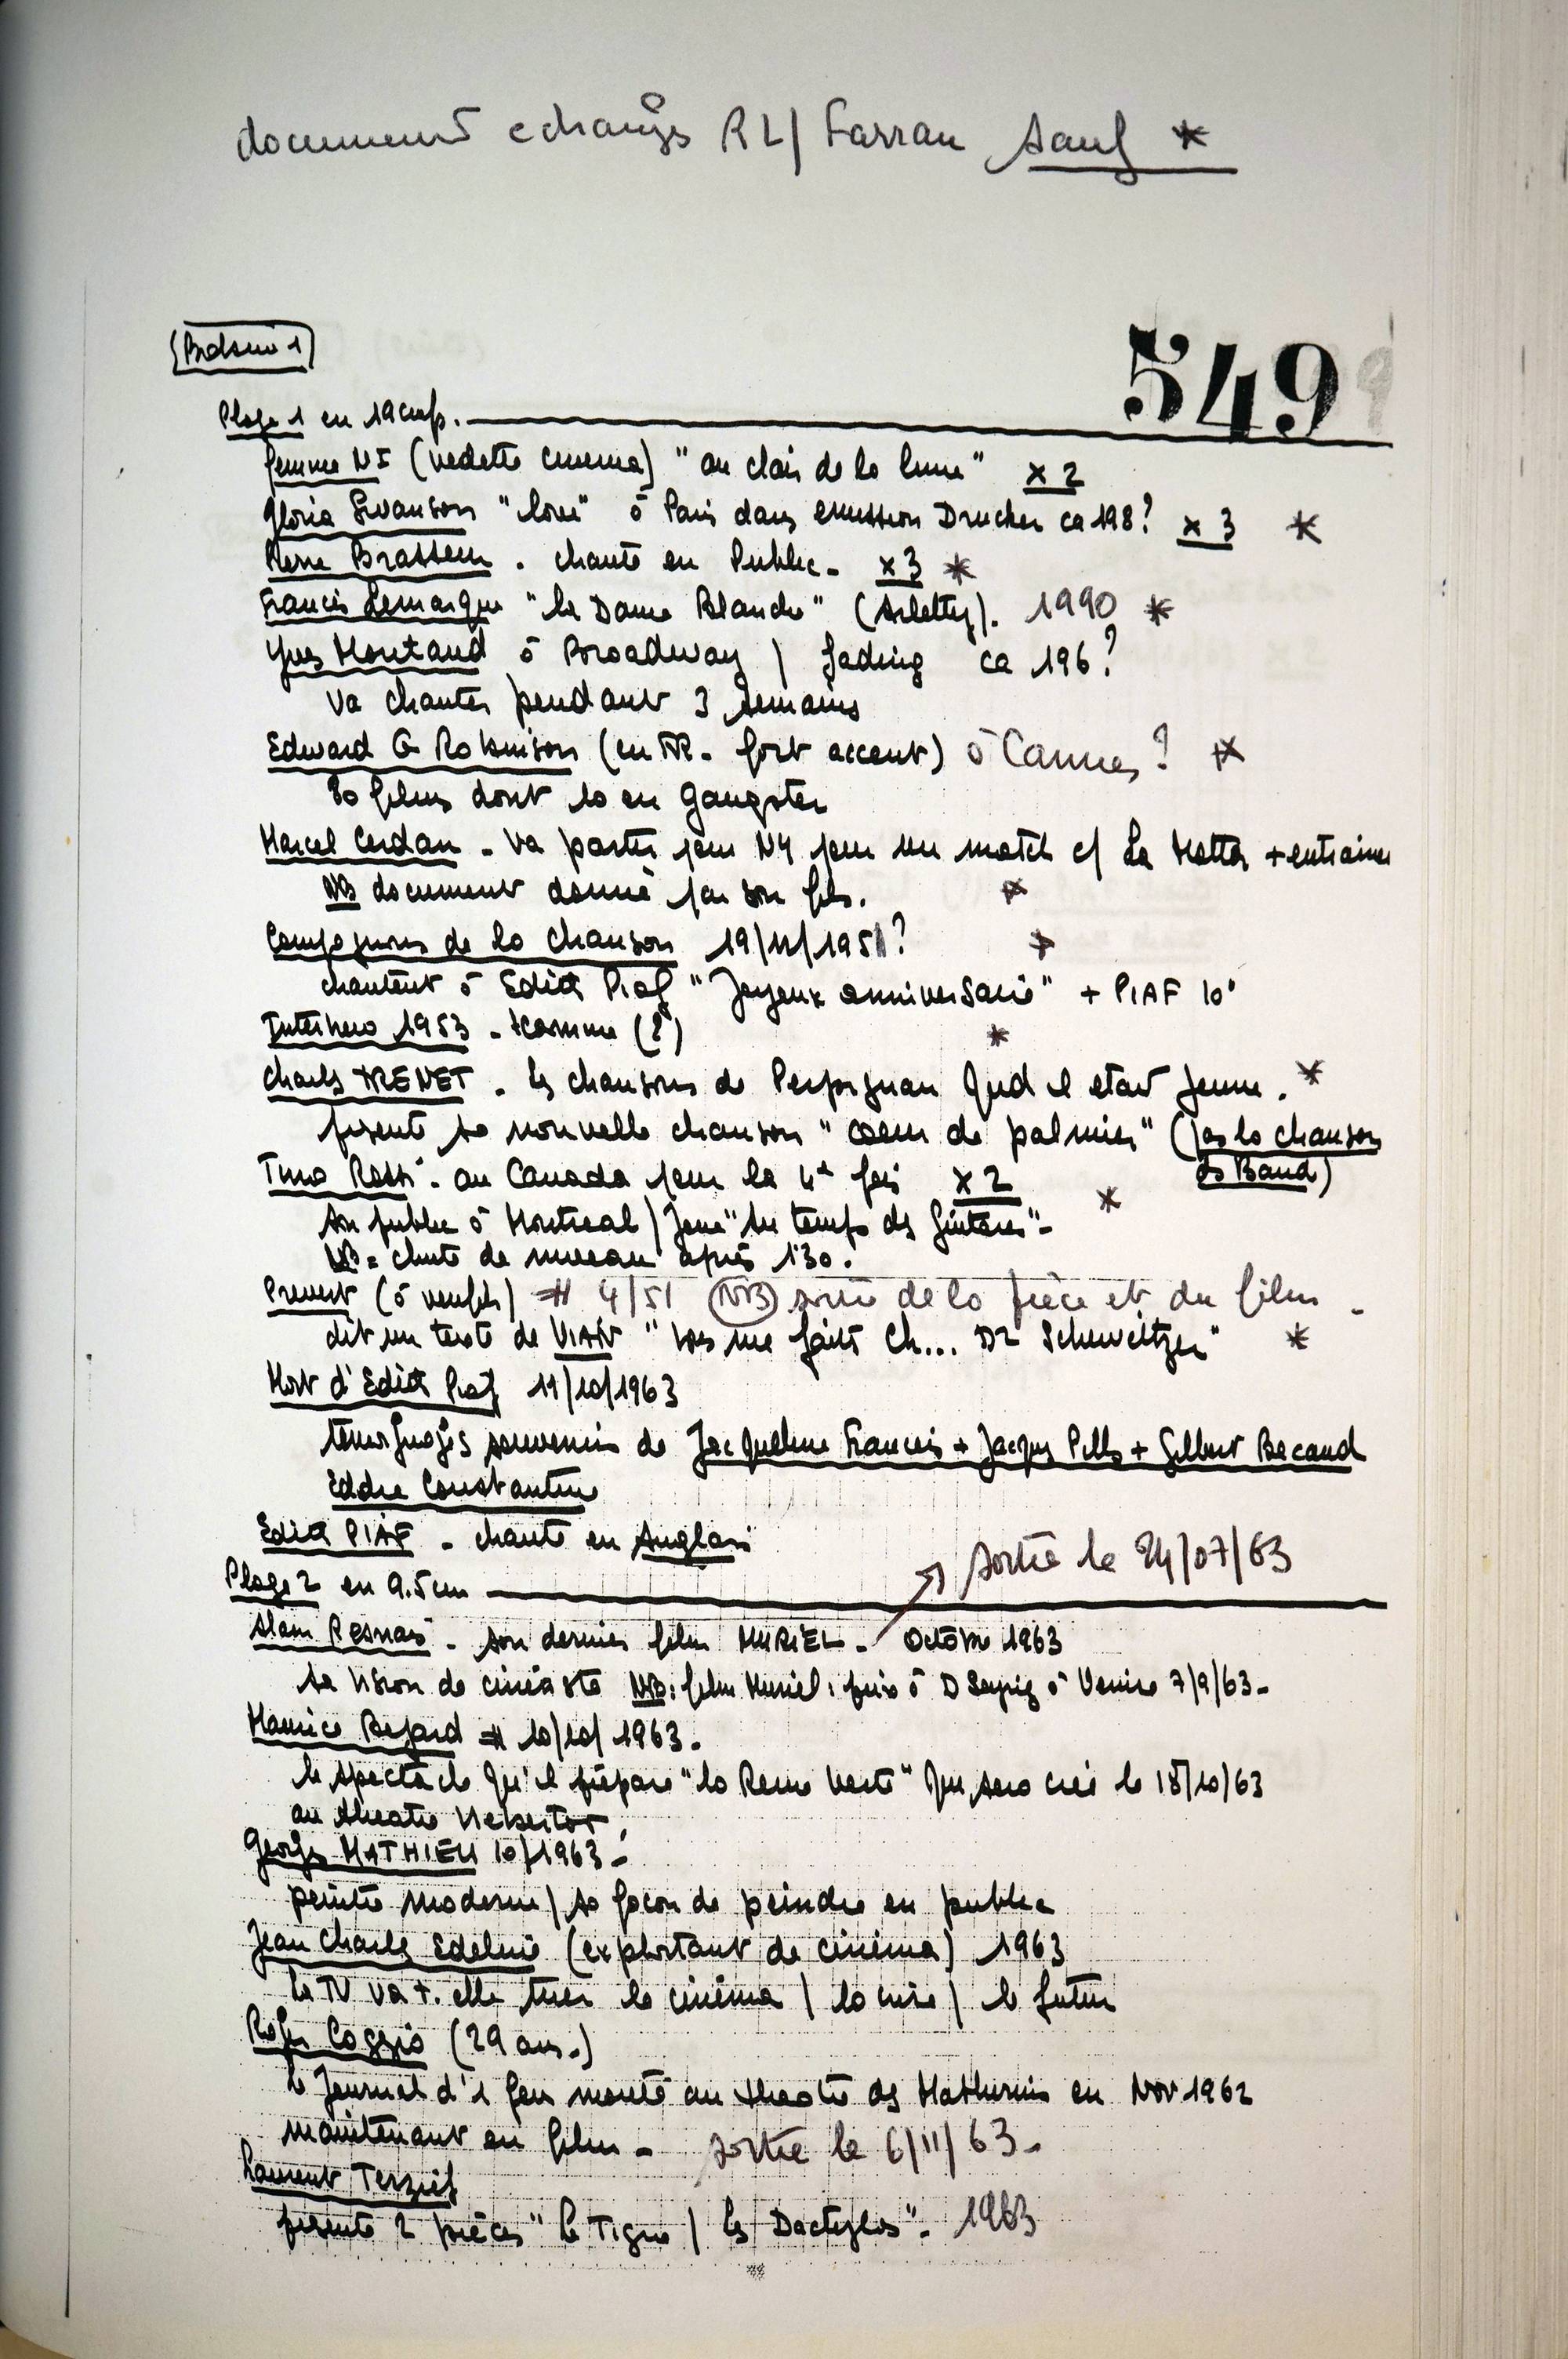 documents echangés RL/ Farran sauf *
549
Bobino 1
Plage 1 en 19 cm/s.
femme NI (vedette cinema) "au clair de la lune" x 2
Gloria Swanson "love" à Paris dans emission Drucker ca 198? x 3 *
Pierre Brasseur. chante en Public - x 3 *
Francis Lemarque "la Dame Blanche" (Arletty). 1990 *
Yves Montand à Broadway / fading ca 196?
va chanter pendant 3 semaines
Edward G Robinson (en FR - fort accent) à Cannes? *
80 films dont 10 en Gangster
Marcel Cerdan - va partir pour NY pour un match c/ La Motta + entrainer
NB document donné par son fils. *
Compagnons de la chanson 19/11/1951? *
chantent à Edith Piaf "Joyeux anniversaire" + PIAF 10'
1953 - (?) *
Charles TRENET - les chansons de Perpignan Qud il etait jeune. *
présente sa nouvelle chanson "coeur de palmier" (pas la chanson
ds Band)
Tino Rossi - au Canada pour la 4è fois x 2 *
son public à Montreal / Joue "Le temps des Guitares" -
NB = chute de niveau après 1'30.
Prevert (à verifier) # 4/51 (NB) sortie de la pièce et du film -
dit un texte de VIAN "vous me faites Ch... Dr Schweitzer" *
Mort d'Edith Piaf 11/10/1963
temoignages souvenirs de Jacqueline Francois + Jacques Pills + Gilbert Becaud
Eddie Constantine
Edith PIAF - chante en Anglais
sortie le 24/07/63
Plage 2 en 9.5 cm
Alain Resnais - son dernier film MURIEL - Octobre 1963
sa vision de cinéaste NB: film Muriel: prix à D Seyrig à Venise 7/9/63 -
Maurice Bejard # 10/10/1963.
le spectacle Qu'il prépare "la Reine Verte" Qui sera créé le 18/10/63
au theatre Hebertot.
Georges MATHIEU 10/1963 -
peintre moderne / sa façon de peindre en public
Jean Charles Edeline (exploitant de cinéma) 1963
la TV va t. elle tuer le cinéma / la crise / le futur
Roger Coggio (29 ans.)
le Journal d'1 fou monté au theatre des Mathurins en Nov 1962
maintenant en film - sortie le 6/11/63 -
Laurent Terzief
présente 2 pièces "Le Tigre / les Dactylos" - 1963